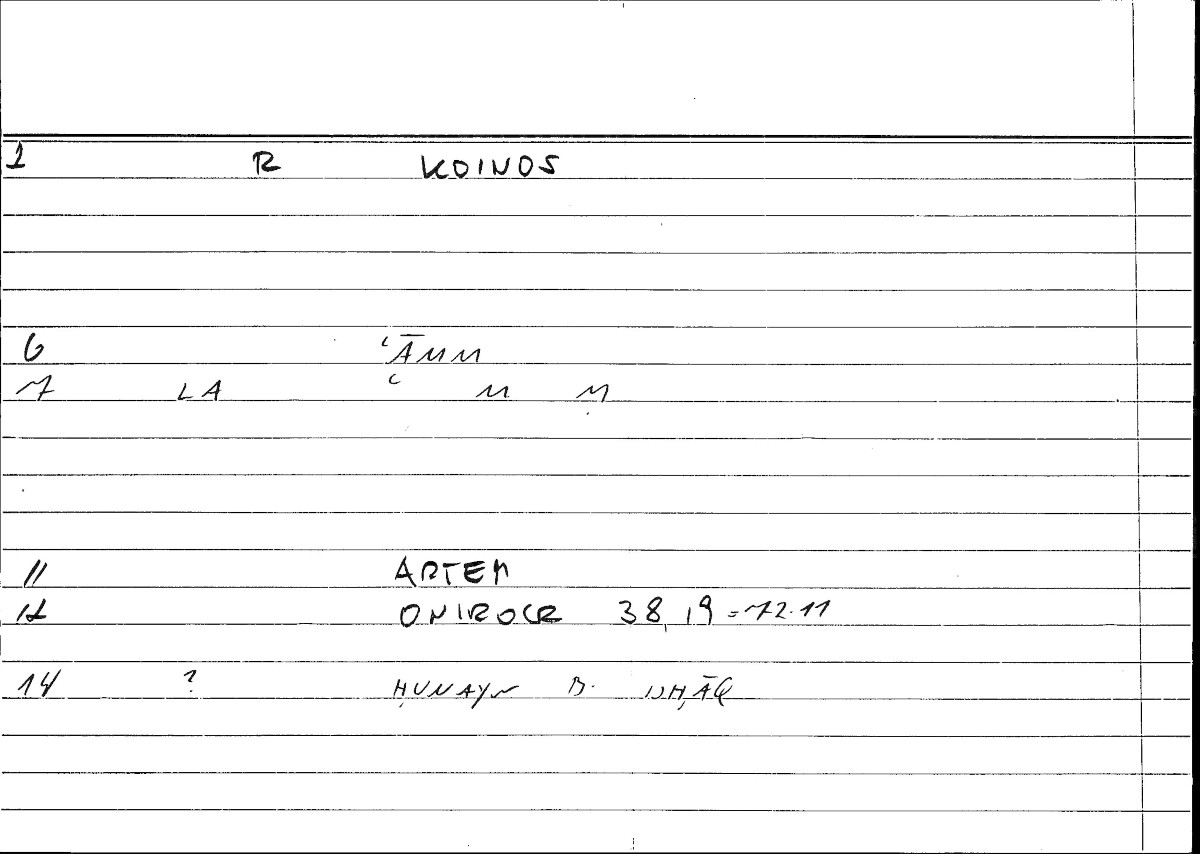 1 R KOINOS
6 ʿĀMM
7 LA ʿ M M
11 ARTEM
12 ONIROCR 38,19=72.11
14 ? ḤUNAYN B. ISḤĀQ